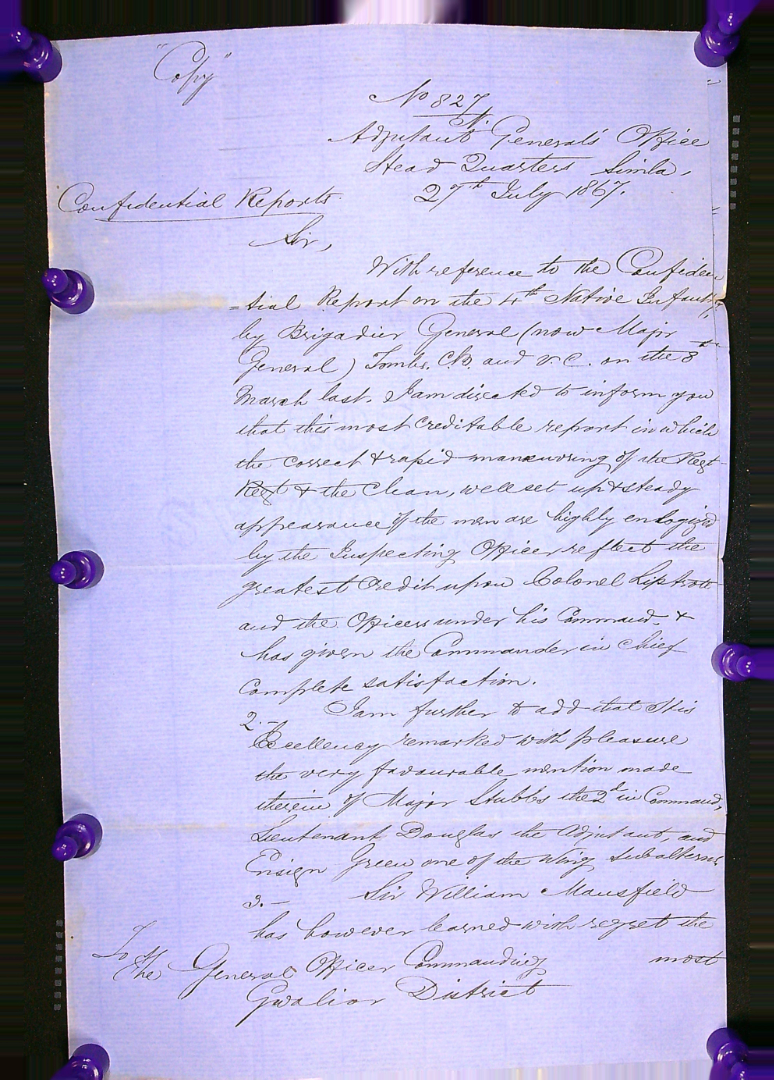 "Copy"
No 827
N.
Adjutant General's Office
Head Quarters Simla,
27th July 1867.
Confidential Reports.
Sir,
With reference to the Confiden
=tial Report on the 4th Native Infantry,
by Brigadier General (now Major
General) Tombs. C.B. and V.C. on the 8th
March last. I am directed to inform you
that this most creditable report in which
the correct & rapid maneuvring of the Regt
Regt & the Clean, well set up & steady
appearance of the men are highly eulogized
by the Inspecting Officer reflect the
greatest Credit upon Colonel Liptrott
and the Officers under his Command. &
has given the Commander in Chief
Complete satisfaction.
2.- I am further to add that His
Excellency remarked with pleasure
the very favourable mention made
therein of Major Stubbs the 2d in Command,
Lieutenant Douglas the Adjutant, and
Ensign Green one of the Wing Subalterns
3.- Sir William Mansfield
has however learned with regret the
most
To
The General Officer Commanding
Gwalior District